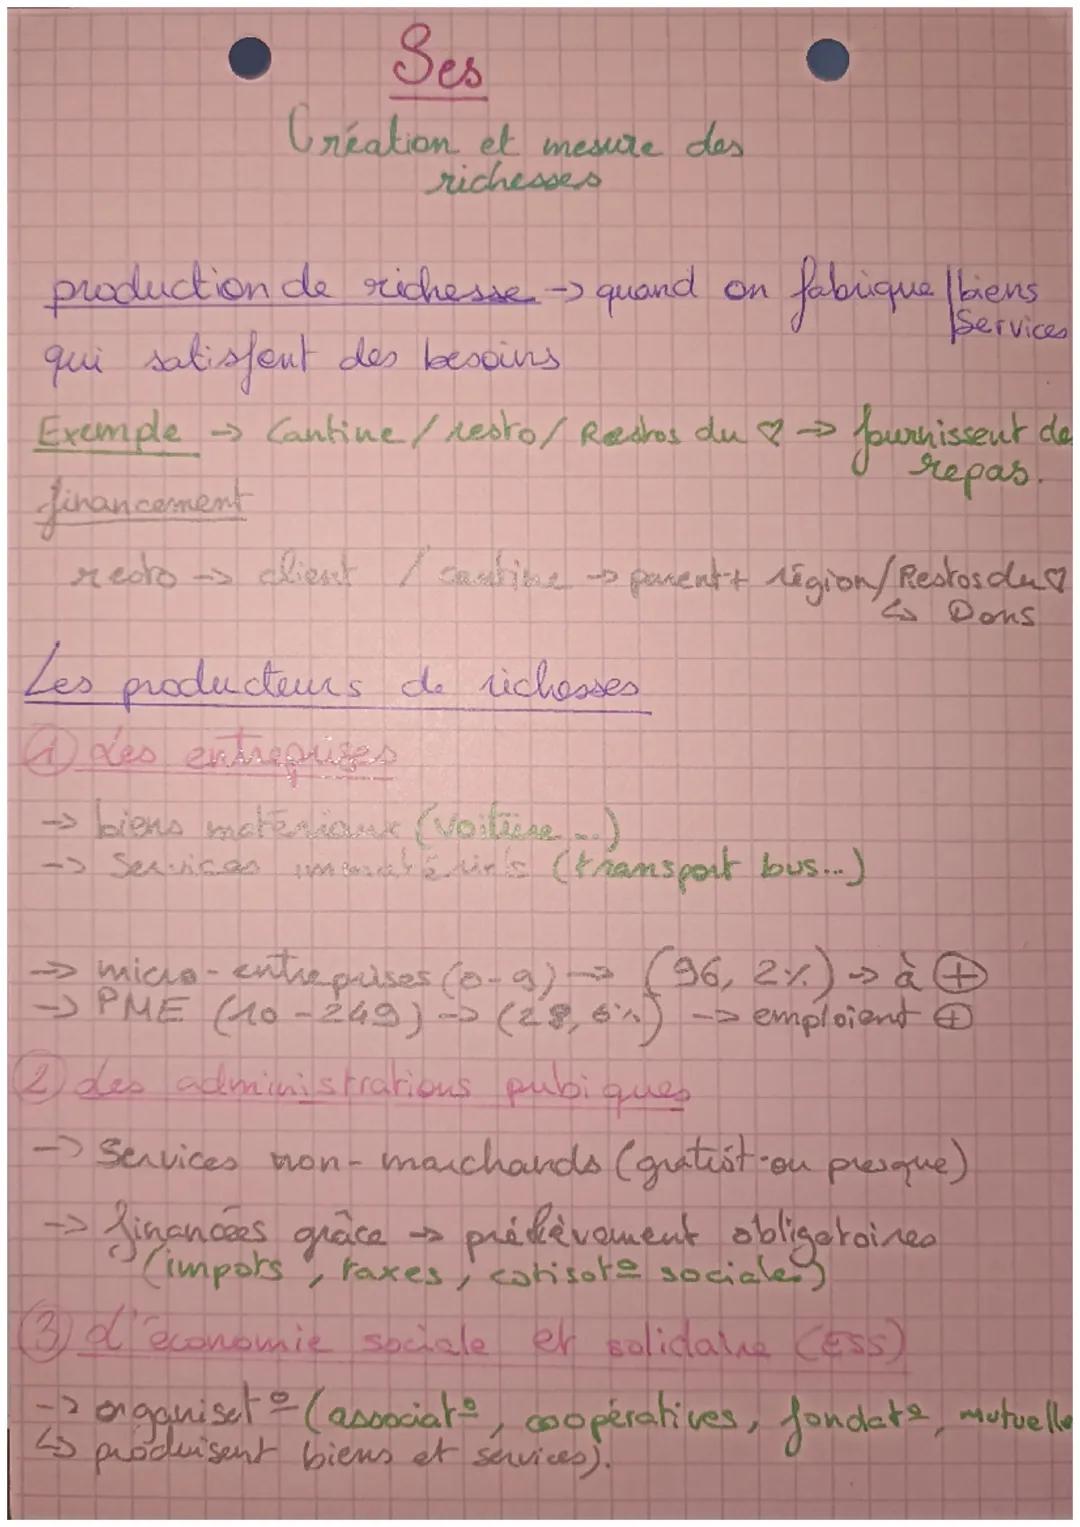 Ses
Création et mesure des
richesses
production de richesse -> quand on fabrique | biens
| Services
qui satisfont des besoins
Exemple -> Cantine / resto / Restos du ♡ => fournissent de
repas.
financement
resto -> client / cantine -> parent + région / Restos du ♡
↳ Dons
Les producteurs de richesses
① Les entreprises
-> biens matériaux (voiture ...)
-> Services immatériels (transport bus...)
-> micro-entreprises (0-9) -> (96, 2%) -> à ⊕
-> PME (10-249) -> (28, 6%) -> emploient ⊕
② des administrations pubiques
-> Services non-marchands (gratuit ou presque)
-> financées grâce -> prélèvement obligatoires
(impots, taxes, cotisat° sociales)
③ d'économie sociale et solidaire (ESS)
-> organisat° (associat°, coopératives, fondat°, mutuelle
↳ produisent biens et services).